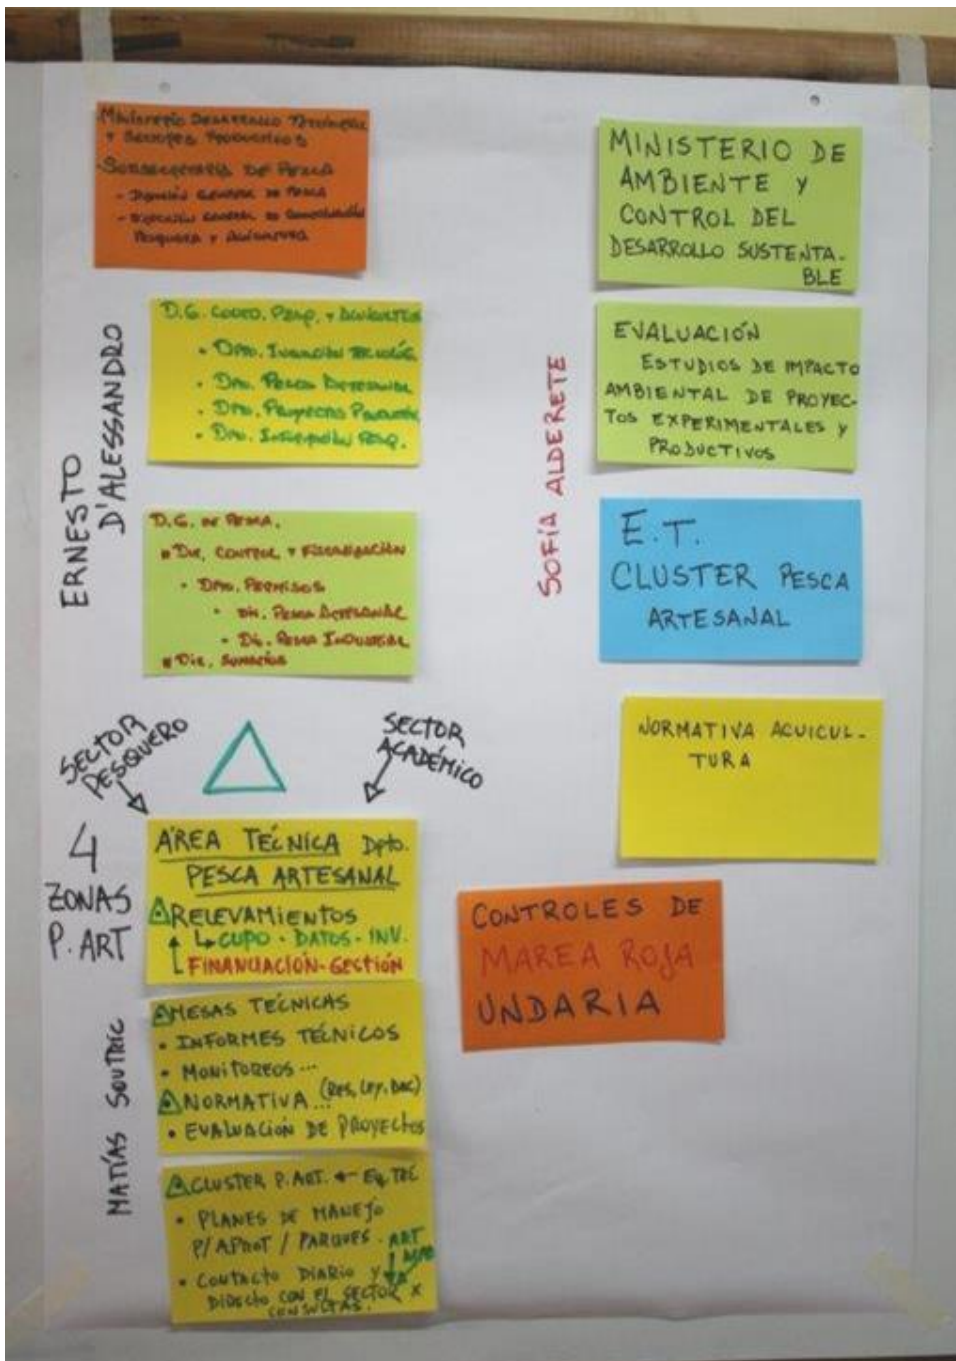 Ministerio Desarrollo Territorial
y Sectores Productivos
Subsecretaría de Pesca
- Dirección General de Pesca
- Dirección General de Coordinación
Pesquera y Acuicultura
ERNESTO
D'ALESSANDRO
D.G. COORD. PESQ. Y ACUICULTURA
• DPTO. PESCA ARTESANAL
• DPTO. PROYECTOS
• DPTO. INFORMACIÓN PESQ.
D.G. DE PESCA.
▪ DIR. CONTROL Y FISCALIZACIÓN
• DPTO. PERMISOS
• DIV. PESCA ARTESANAL
• DIV. PESCA INDUSTRIAL
▪ DIR. SUMARIOS
SECTOR
PESQUERO
SECTOR
ACADÉMICO
4
ZONAS
P. ART
ÁREA TÉCNICA Dpto.
PESCA ARTESANAL
RELEVAMIENTOS
↳ CUPO · DATOS · INV.
FINANCIACIÓN-GESTIÓN
MATÍAS SOUTRIC
MESAS TÉCNICAS
• INFORMES TÉCNICOS
• MONITOREOS ...
NORMATIVA ... (RES, LEY, DEC)
• EVALUACIÓN DE PROYECTOS
CLUSTER P. ART. ← EQ. TEC
• PLANES DE MANEJO
P/ APROT / PARQUES. ART
• CONTACTO DIARIO Y
DIRECTO CON EL SECTOR X
CONSULTAS.
SOFÍA ALDERETE
MINISTERIO DE
AMBIENTE Y
CONTROL DEL
DESARROLLO SUSTENTA-
BLE
EVALUACIÓN
ESTUDIOS DE IMPACTO
AMBIENTAL DE PROYEC-
TOS EXPERIMENTALES Y
PRODUCTIVOS
E.T.
CLUSTER PESCA
ARTESANAL
NORMATIVA ACUICUL-
TURA
CONTROLES DE
MAREA ROJA
UNDARIA